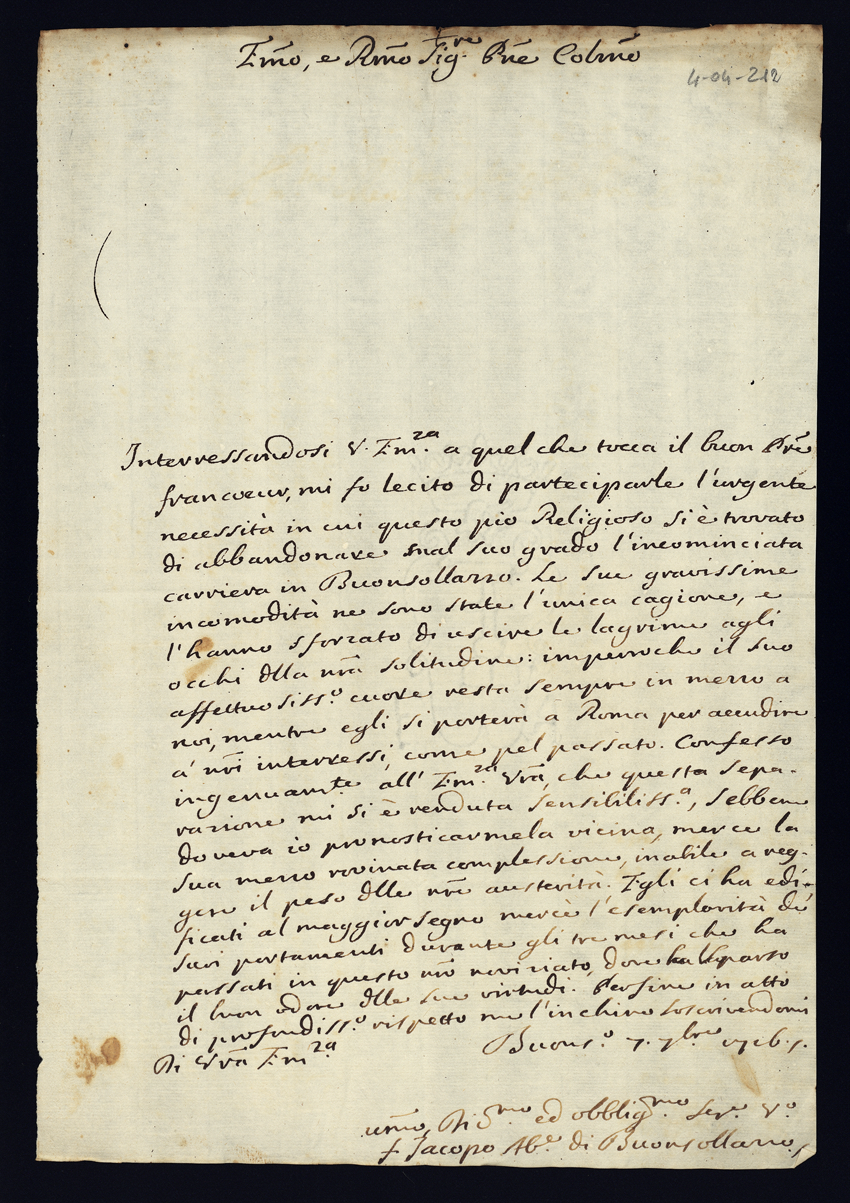 Em̃o, e Rm̃o Sig.re Pñe Colmõ
4-04-212
Interressandosi V. Em.za a quel che tocca il buon Prẽ
francoeur, mi fo lecito di parteciparle l'urgente
necessità in cui questo pio Religioso si è trovato
di abbandonare mal suo grado l'incominciata
carriera in Buonsollazzo. Le sue gravissime
incomodità ne sono state l'unica cagione, e
l'hanno sforzato di uscire le lagrime agli
occhi dlla nrã solitudine: imperroche il suo
affettuosiss.o cuore resta sempre in mezzo a
noi, mentre egli si porterà a Roma per accudire
a' nrĩ interressi, come pel passato. Confesso
ingenuamte all' Em.za Vrã, che questa sepa-
razione mi si è renduta sensibiliss.a, sebbene
doveva io pronosticarmela vicina, merce la
sua mezzo rovinata complessione, inabile a reg-
gere il peso dlle nrẽ austerità. Egli ci ha edi-
ficati al maggior segno mercè l'esemplarità de'
suoi portamenti durante gli tre mesi che ha
passati in questo nrõ noviziato, dove ha sparso
il buon odore dlle sue virtudi. Perfine in atto
di profondiss.o rispetto me l'inchino soscrivendomi
Di Vrã Em.za
Buons.o 7. 7bre 1726.
um̃o, Di.mo ed obblig.mo Ser.e V.o
f. Jacopo Ab.e di Buonsollazzo